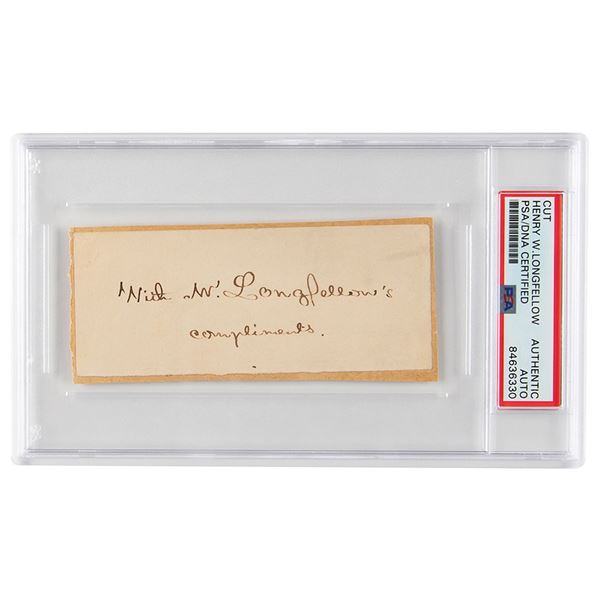 With Mr. Longfellow's
compliments.
CUT
HENRY W. LONGFELLOW
PSA/DNA CERTIFIED
PSA
AUTHENTIC
AUTO
84636330